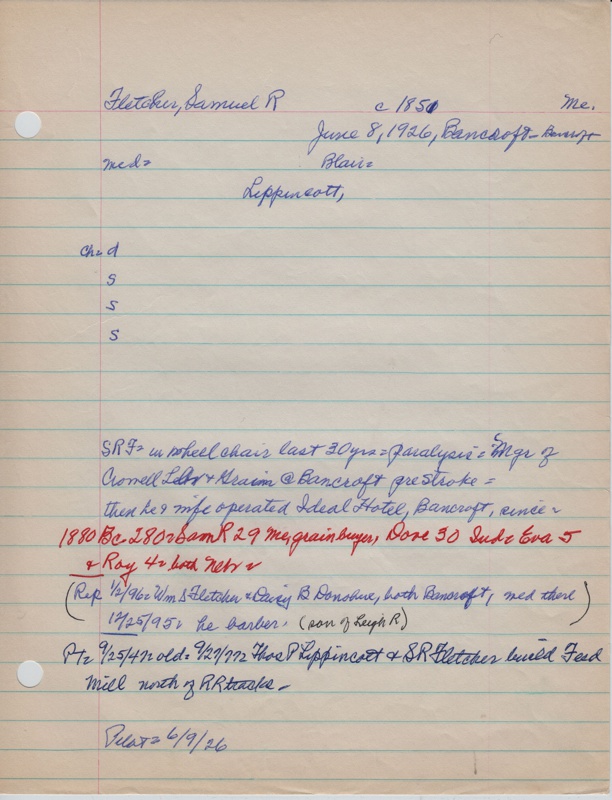 Fletcher, Samuel R c 1851 Me.
June 8, 1926, Bancroft - Bancroft
med= Blair=
Lippincott,
ch= d
s
s
s
SRF= in wheel chair last 30 yrs = paralysis = Mgr of
Crowell Lbr & Grain @ Bancroft pre stroke =
then he & wife operated Ideal Hotel, Bancroft, since =
1880 Bc 280= Sam R 29 Me, grainbuyer, Dove 30 Ind= Eva 5
& Roy 4= both Nebr =
(Rep 1/2/96= Wm S Fletcher & Daisy B Donohue, both Bancroft, med there
12/25/95= he barber. (son of Leigh R)
Pt= 9/25/42= old= 9/27/72 Thos P Lippincott & SR Fletcher build Feed
Mill north of RR tracks -
Pilot= 6/9/26